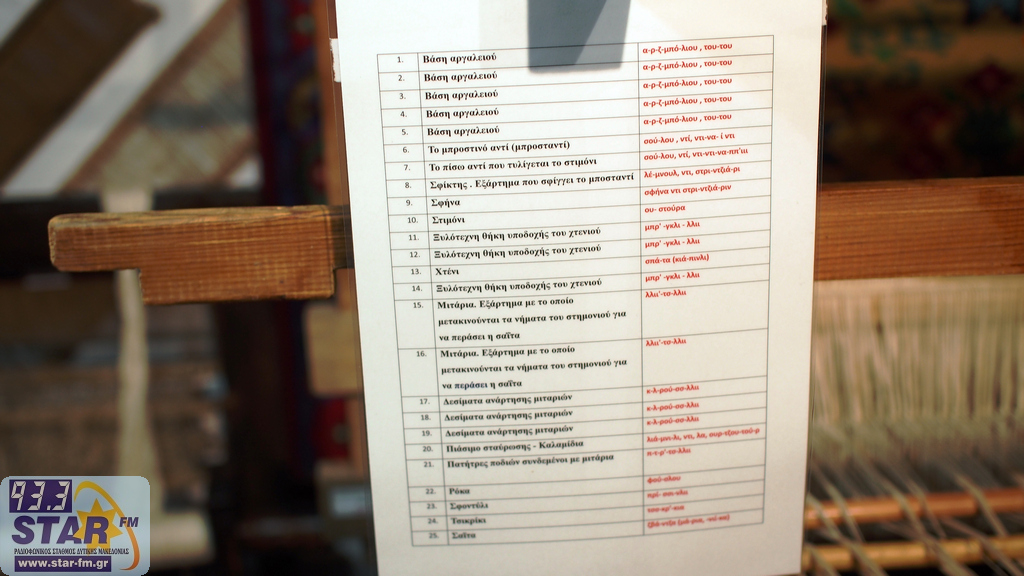 1. Βάση αργαλειού α-ρ-ζ-μπό-λιου , του-του
2. Βάση αργαλειού α-ρ-ζ-μπό-λιου , του-του
3. Βάση αργαλειού α-ρ-ζ-μπό-λιου , του-του
4. Βάση αργαλειού α-ρ-ζ-μπό-λιου , του-του
5. Βάση αργαλειού α-ρ-ζ-μπό-λιου , του-του
6. Το μπροστινό αντί (μπροσταντί) σού-λου , ντί, ντι-να- ί ντι
7. Το πίσω αντί που τυλίγεται το στιμόνι σού-λου, ντί, ντι-ντι-να-ππ'ιιι
8. Σφίκτης . Εξάρτημα που σφίγγει το μποσταντί λέ-μνουλ, ντι, στρι-ντζιά-ρι
9. Σφήνα σφήνα ντι στρι-ντζιά-ριν
10. Στιμόνι ου- στούρα
11. Ξυλότεχνη θήκη υποδοχής του χτενιού μπρ' -γκλι - λλιι
12. Ξυλότεχνη θήκη υποδοχής του χτενιού μπρ' -γκλι - λλιι
13. Χτένι σπά-τα (κιά-πινλι)
14. Ξυλότεχνη θήκη υποδοχής του χτενιού μπρ' -γκλι - λλιι
15. Μιτάρια. Εξάρτημα με το οποίο λλιι'-τσ-λλιι
μετακινούνται τα νήματα του στημονιού για
να περάσει η σαΐτα
16. Μιτάρια. Εξάρτημα με το οποίο λλιι'-τσ-λλιι
μετακινούνται τα νήματα του στημονιού για
να περάσει η σαΐτα
17. Δεσίματα ανάρτησης μιταριών κ-λ-ρού-σσ-λλιι
18. Δεσίματα ανάρτησης μιταριών κ-λ-ρού-σσ-λλιι
19. Δεσίματα ανάρτησης μιταριών κ-λ-ρού-σσ-λλιι
20. Πιάσιμο σταύρωσης - Καλαμίδια
21. Πατήτρες ποδιών συνδεμένοι με μιτάρια
22. Ρόκα
23. Σφοντύλι
24. Τσικρίκι
25. Σαΐτα
93.3
STAR FM
ΡΑΔΙΟΦΩΝΙΚΟΣ ΣΤΑΘΜΟΣ ΔΥΤΙΚΗΣ ΜΑΚΕΔΟΝΙΑΣ
www.star-fm.gr